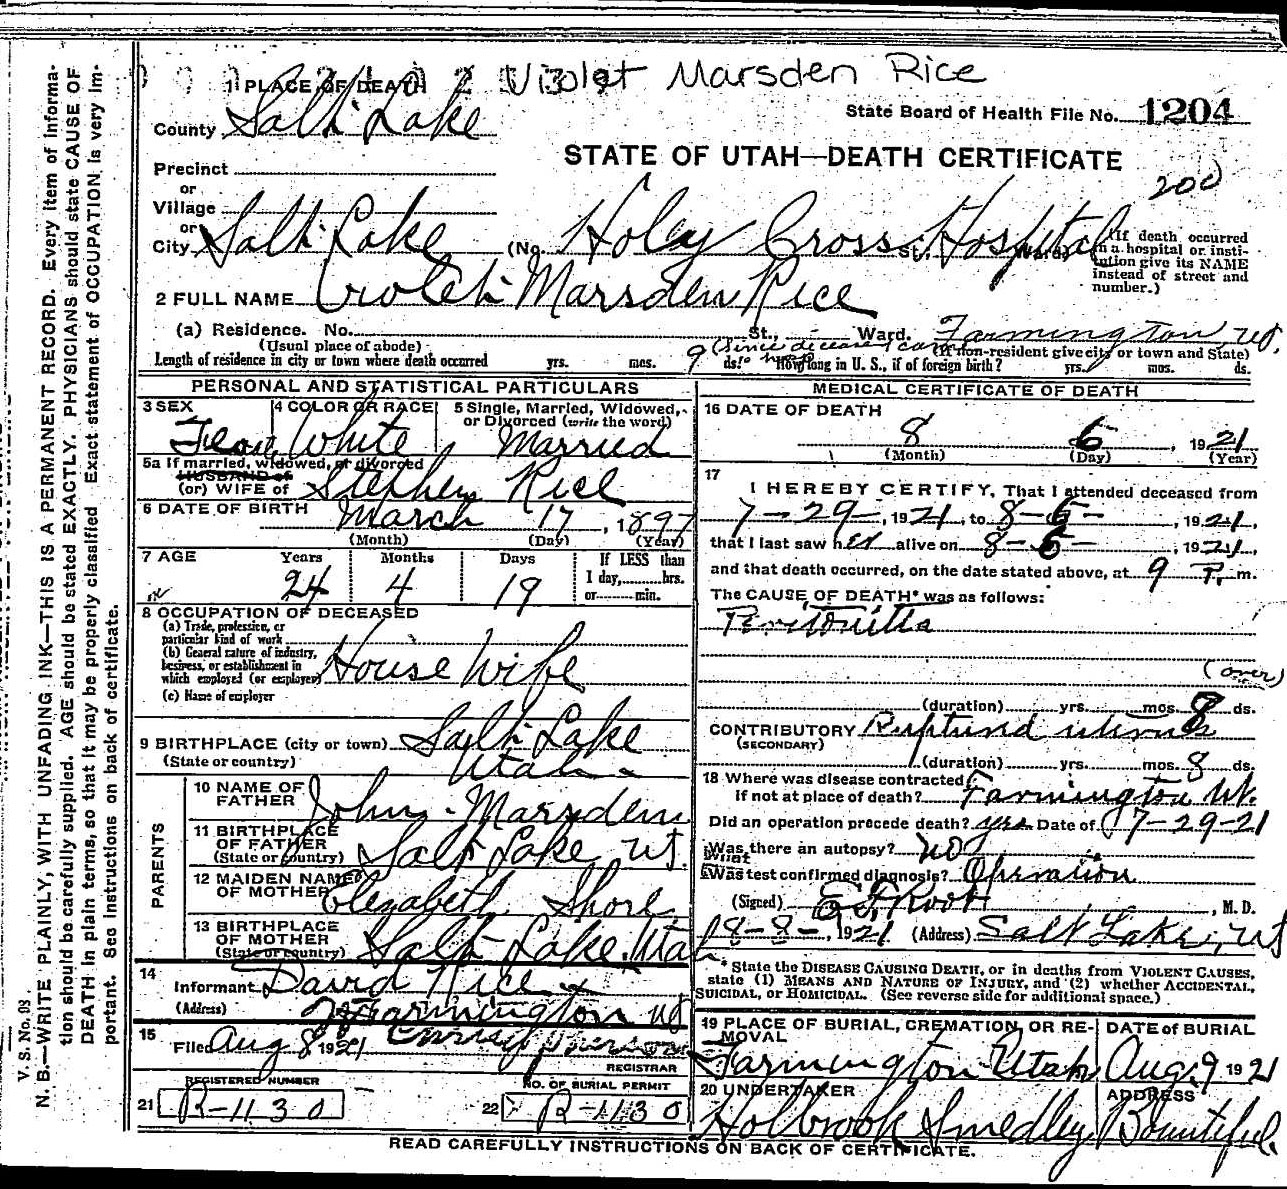 Violet Marsden Rice
1 PLACE OF DEATH
State Board of Health File No. 1204
County Salt Lake
STATE OF UTAH—DEATH CERTIFICATE
200
Precinct
or
Village
or
City Salt Lake (No. Holy Cross Hospital St., Ward)
(If death occurred in a hospital or insti-
tution give its NAME
instead of street and
number.)
2 FULL NAME Violet Marsden Rice
(a) Residence. No. St., Ward. Farmington, Ut.
(Usual place of abode) (If non-resident give city or town and State)
(Since deceased came to hosp
Length of residence in city or town where death occurred yrs. mos. 9 ds. How long in U. S., if of foreign birth? yrs. mos. ds.
PERSONAL AND STATISTICAL PARTICULARS
3 SEX Fem
4 COLOR OR RACE White
5 Single, Married, Widowed,
or Divorced (write the word)
Married
5a If married, widowed, or divorced
HUSBAND of
(or) WIFE of Stephen Rice
6 DATE OF BIRTH March 17, 1897
(Month) (Day) (Year)
7 AGE Years Months Days If LESS than
24 4 19 1 day,.....hrs.
or.....min.
8 OCCUPATION OF DECEASED
(a) Trade, profession, or
particular kind of work
(b) General nature of industry,
business, or establishment in
which employed (or employer) House Wife
(c) Name of employer
9 BIRTHPLACE (city or town) Salt Lake
(State or country) Utah
PARENTS
10 NAME OF
FATHER John Marsden
11 BIRTHPLACE
OF FATHER
(State or Country) Salt Lake Ut.
12 MAIDEN NAME
OF MOTHER Elizabeth Shore
13 BIRTHPLACE
OF MOTHER
(State or country) Salt Lake, Utah
14
Informant David Rice
(Address) Farmington Ut
15
Filed Aug 8 1921
REGISTRAR
REGISTERED NUMBER
21 R-1130
NO. OF BURIAL PERMIT
22 R-1130
MEDICAL CERTIFICATE OF DEATH
16 DATE OF DEATH
8 6, 1921
(Month) (Day) (Year)
17
I HEREBY CERTIFY, That I attended deceased from
7-29-, 1921, to 8-6-, 1921,
that I last saw her alive on 8-6-, 1921,
and that death occurred, on the date stated above, at 9 P. m.
The CAUSE OF DEATH* was as follows:
Peritonitis
(over)
(duration) yrs. mos. 8 ds.
CONTRIBUTORY Ruptured uterus
(SECONDARY)
(duration) yrs. mos. 8 ds.
18 Where was disease contracted
if not at place of death? Farmington Ut.
Did an operation precede death? yes Date of 7-29-21
Was there an autopsy? no
What test confirmed diagnosis? Operation
(Signed) E F Root, M. D.
8-8-, 1921 (Address) Salt Lake, Ut
* State the DISEASE CAUSING DEATH, or in deaths from VIOLENT CAUSES,
state (1) MEANS AND NATURE OF INJURY, and (2) whether ACCIDENTAL,
SUICIDAL, or HOMICIDAL. (See reverse side for additional space.)
19 PLACE OF BURIAL, CREMATION, OR RE-
MOVAL
Farmington Utah
DATE of BURIAL
Aug. 9 1921
20 UNDERTAKER
Holbrook Smedley
ADDRESS
Bountiful.
READ CAREFULLY INSTRUCTIONS ON BACK OF CERTIFICATE.
V. S. No. 98.
N. B.—WRITE PLAINLY, WITH UNFADING INK—THIS IS A PERMANENT RECORD. Every item of informa-
tion should be carefully supplied. AGE should be stated EXACTLY. PHYSICIANS should state CAUSE OF
DEATH in plain terms, so that it may be properly classified. Exact statement of OCCUPATION is very im-
portant. See instructions on back of certificate.